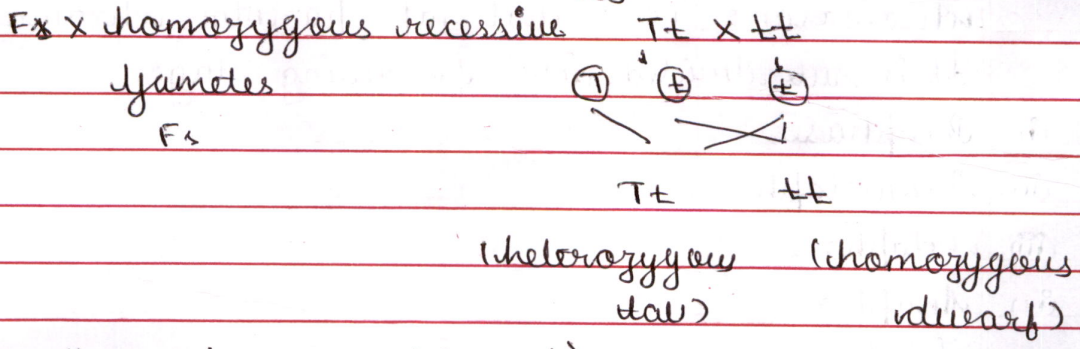 F1 x homozygous recessive Tt x tt
Gametes T t t
F1
Tt tt
(heterozygous (homozygous
tall) dwarf)